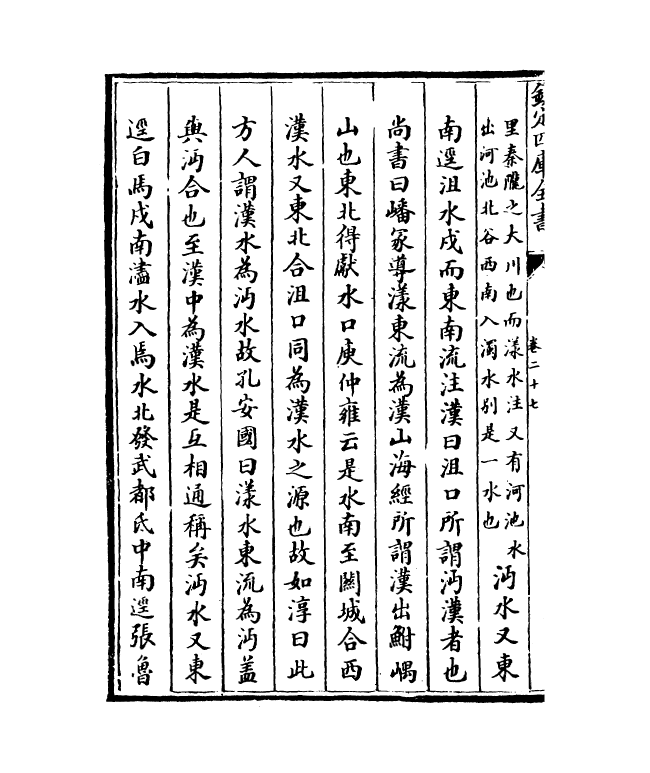 欽定四庫全書
卷二十七
里秦隴之大川也而漾水注又有河池水
出河池北谷西南入濁水别是一水也
沔水又東
南逕沮水戍而東南流注漢曰沮口所謂沔漢者也
尚書曰嶓冢導漾東流為漢山海經所謂漢出鮒嵎
山也東北得獻水口庾仲雍云是水南至關城合西
漢水又東北合沮口同為漢水之源也故如淳曰此
方人謂漢水為沔水故孔安國曰漾水東流為沔盖
與沔合也至漢中為漢水是互相通稱矣沔水又東
逕白馬戍南濜水入焉水北發武都氐中南逕張魯